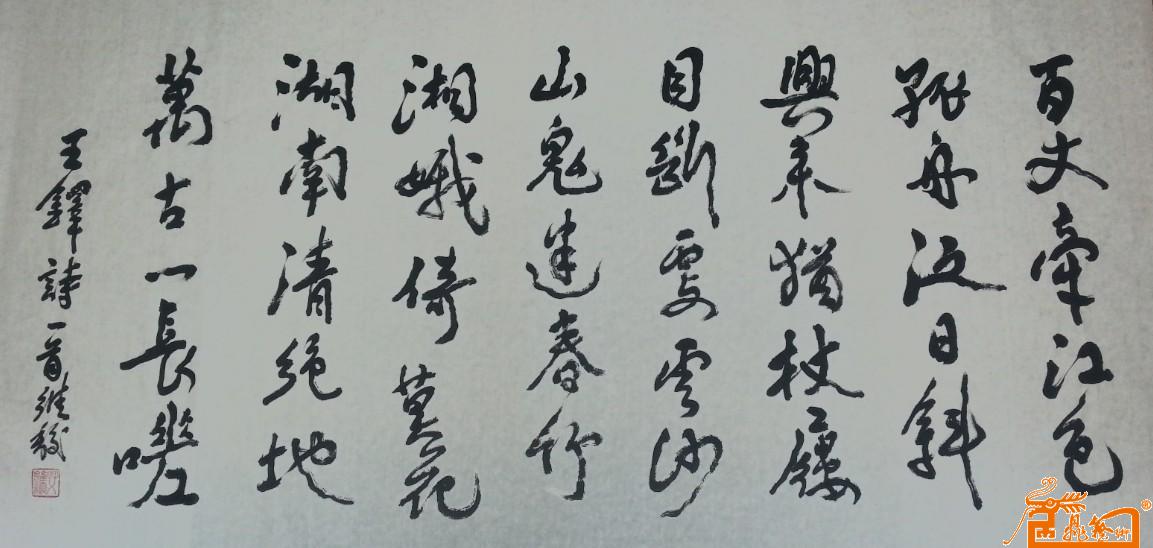 百丈牽江色
孤舟泛日斜
興来猶杖屨
目斷更雲沙
山鬼迷春竹
湘娥倚莫花
湖南清絕地
萬古一長嗟
王鐸詩一首